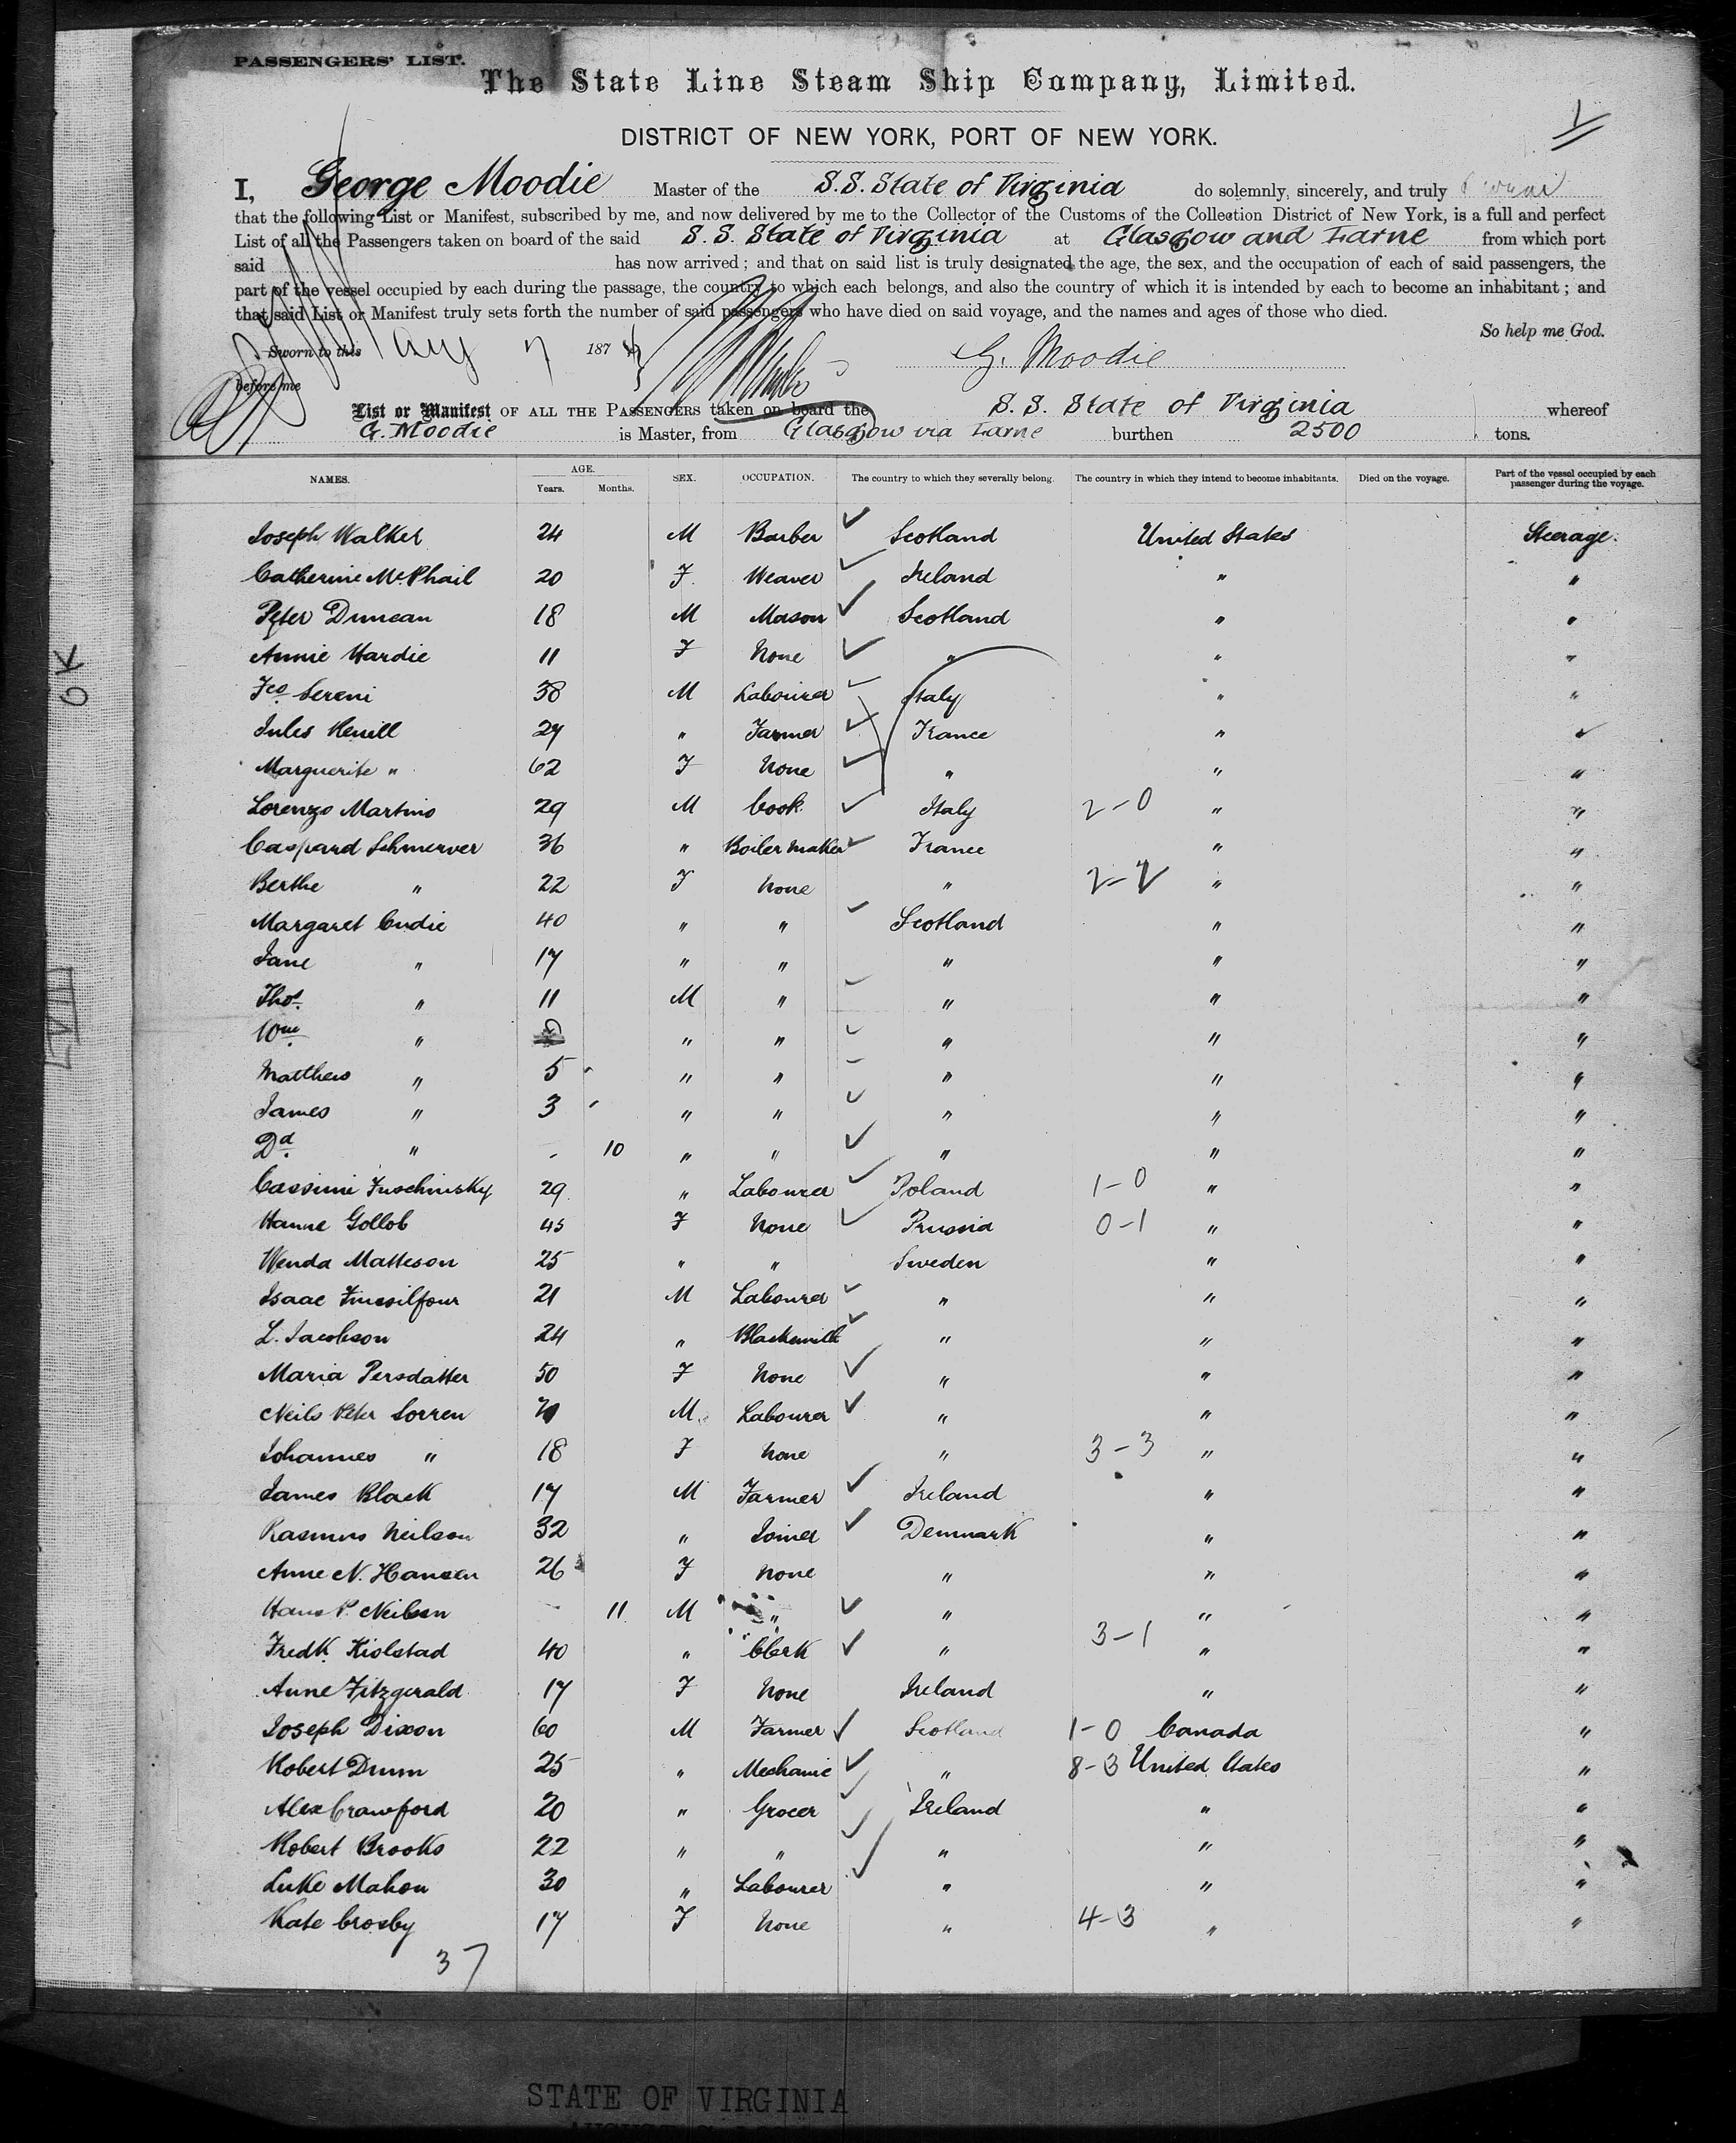 PASSENGERS' LIST.
The State Line Steam Ship Company, Limited.
DISTRICT OF NEW YORK, PORT OF NEW YORK.
I, George Moodie Master of the S.S. State of Virginia do solemnly, sincerely, and truly swear
that the following List or Manifest, subscribed by me, and now delivered by me to the Collector of the Customs of the Collection District of New York, is a full and perfect
List of all the Passengers taken on board of the said S. S. State of Virginia at Glasgow and Larne from which port
said has now arrived; and that on said list is truly designated the age, the sex, and the occupation of each of said passengers, the
part of the vessel occupied by each during the passage, the country to which each belongs, and also the country of which it is intended by each to become an inhabitant; and
that said List or Manifest truly sets forth the number of said passengers who have died on said voyage, and the names and ages of those who died.
So help me God.
Sworn to this Aug 7 187
G. Moodie
before me
List or Manifest OF ALL THE PASSENGERS taken on board the S. S. State of Virginia whereof
G. Moodie is Master, from Glasgow via Larne burthen 2500 tons.
NAMES. AGE. Years. Months. SEX. OCCUPATION. The country to which they severally belong. The country in which they intend to become inhabitants. Died on the voyage. Part of the vessel occupied by each passenger during the voyage.
Joseph Walker 24 M Barber Scotland United States Steerage.
Catherine McPhail 20 F. Weaver Ireland " "
Peter Duncan 18 M Mason Scotland " "
Annie Hardie 11 F None " " "
Fco Sereni 38 M Labourer Italy " "
Jules Henill 29 " Farmer France " "
Marguerite " 62 F None " " "
Lorenzo Martino 29 M Cook Italy 2-0 " "
Caspard Schmerver 36 " Boiler maker France " "
Berthe " 22 F None " 2-2 " "
Margaret Cudie 40 " " Scotland " "
Jane " 17 " " " " "
Thos. " 11 M " " " "
Wm. " " " " " "
Matthew " 5 " " " " "
James " 3 " " " " "
Dd. " - 10 " " " " "
Cassimi Fuschinsky 29 " Labourer Poland 1-0 " "
Hanne Gollob 45 F None Prussia 0-1 " "
Wenda Matteson 25 " " Sweden " "
Isaac Finesilfour 21 M Labourer " " "
L. Jacobson 24 " Blacksmith " " "
Maria Persdatter 50 F None " " "
Neils Peter Sorren M. Labourer " " "
Johannes " 18 F None " 3-3 " "
James Black 17 M Farmer Ireland " "
Rasmus Neilson 32 " Joiner Denmark " "
Anne N. Hansen 26 F None " " "
Hans P. Neilsen - 11 M " " " "
Fredk. Kiolstad 40 " Clerk " 3-1 " "
Anne Fitzgerald 17 F None Ireland " "
Joseph Dixon 60 M Farmer Scotland 1-0 Canada "
Robert Dunn 25 " Mechanic " 8-3 United States "
Alex Crawford 20 " Grocer Ireland " "
Robert Brooks 22 " " " " "
Luke Mahon 30 " Labourer " " "
Kate Crosby 17 F None " 4-3 " "
37
OK
STATE OF VIRGINIA